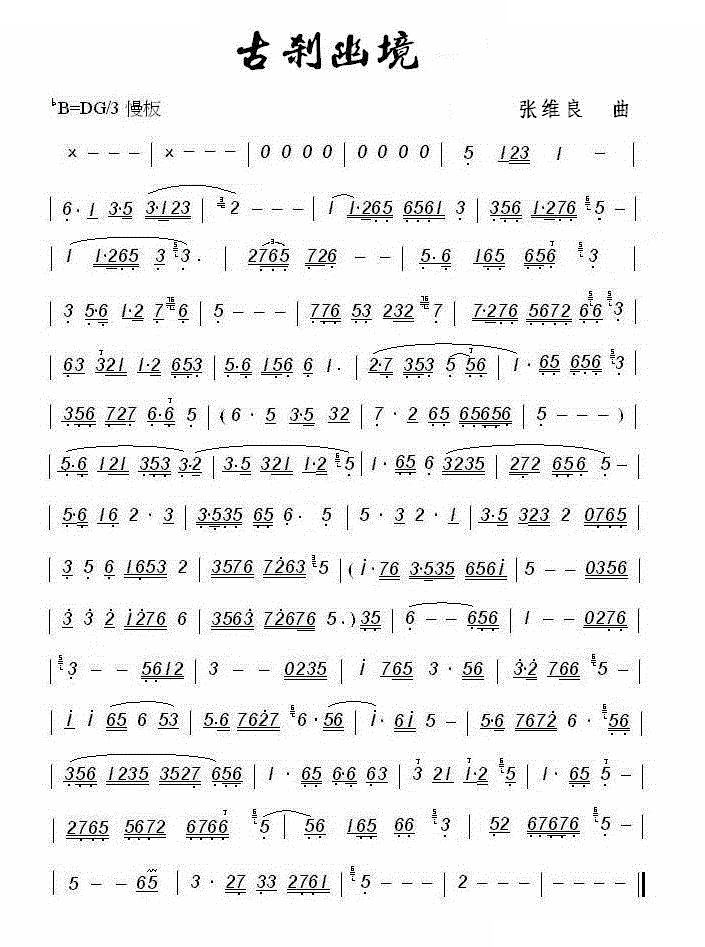 古刹幽境
♭B=DG/3 慢板 张维良 曲
x – – – | x – – – | 0 0 0 0 | 0 0 0 0 | 5 123 1 – |
| 6· 1 3·5 3·123 | 3 2 – – – | 1 1·265 6561 3 | 356 1·276 6 5 – |
| 1 1·265 3 5 3· | 2765 726 – – | 5·6 165 656 5 3 |
| 3 5·6 1·2 7 76 6 | 5 – – – | 776 53 232 76 7 | 7·276 5672 66 5 3 |
| 63 321 1·2 653 | 5·6 156 6 1· | 2·7 353 5 56 | 1· 65 656 5 3 |
| 356 727 6·6 5 | (6· 5 3·5 32 | 7· 2 65 65656 | 5 – – – ) |
| 5·6 121 353 3·2 | 3·5 321 1·2 6 5 | 1· 65 6 3235 | 272 656 5 – |
| 5·6 16 2· 3 | 3·535 65 6· 5 | 5· 3 2· 1 | 3·5 323 2 0765 |
| 3 5 6 1653 2 | 3576 7263 3 5 | (1·76 3·535 6561 | 5 – – 0356 |
| 3 3 2 1276 6 | 3563 72676 5·) 35 | 6 – – 656 | 1 – – 0276 |
| 5 3 – – 5612 | 3 – – 0235 | 1 765 3· 56 | 3·2 766 6 5 – |
| 1 1 65 6 53 | 5·6 7627 6 6· 56 | 1· 61 5 – | 5·6 7672 6· 6 56 |
| 356 1235 3527 656 | 1· 65 6·6 63 | 3 21 1·2 6 5 | 1· 65 5 – |
| 2765 5672 6766 6 5 | 56 165 66 6 3 | 52 67676 6 5 – |
| 5 – – 65 | 3· 27 33 2761 | 6 5 – – – | 2 – – – | – – – – ‖